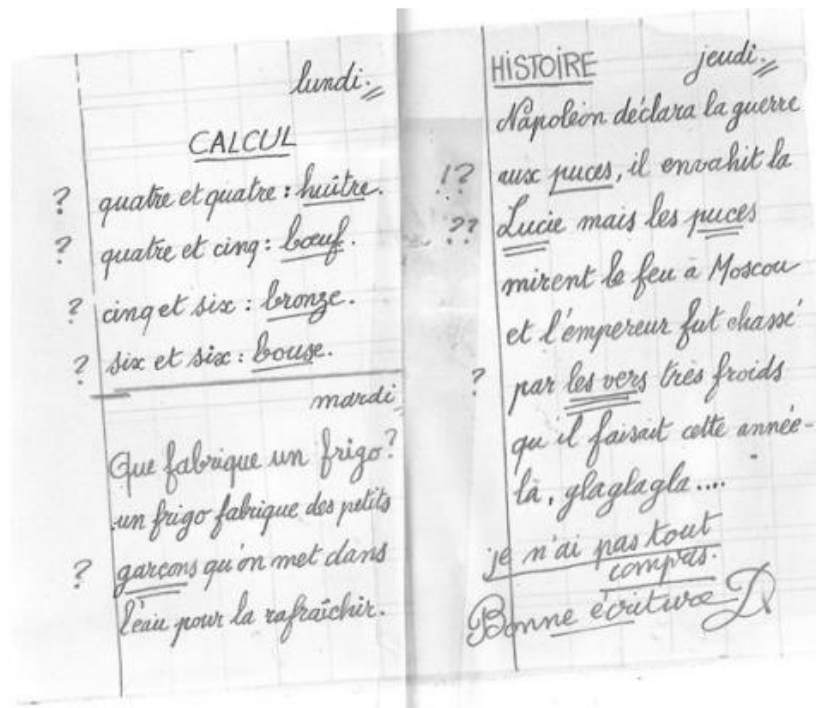 lundi.
CALCUL
? quatre et quatre : huître.
? quatre et cinq : bœuf.
? cinq et six : bronze.
? six et six : bouse.
mardi
Que fabrique un frigo?
un frigo fabrique des petits
? garçons qu'on met dans
l'eau pour la rafraîchir.
HISTOIRE jeudi.
Napoléon déclara la guerre
!? aux puces, il envahit la
?? Lucie mais les puces
mirent le feu à Moscou
et l'empereur fut chassé
? par les vers très froids
qu'il faisait cette année-
là, glaglagla....
je n'ai pas tout
compris.
Bonne écriture D